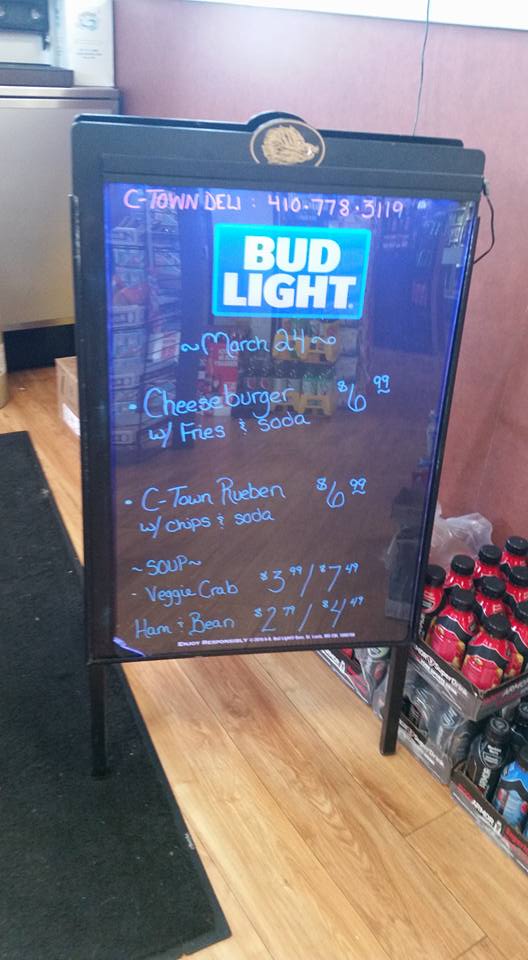 C-TOWN DELI : 410-778-3119
BUD
LIGHT
~March 24~
• Cheeseburger $6.99
w/ Fries & soda
• C-Town Rueben $6.99
w/ chips & soda
~SOUP~
- Veggie Crab $3.99/$7.49
Ham & Bean $2.79/$4.49
ENJOY RESPONSIBLY